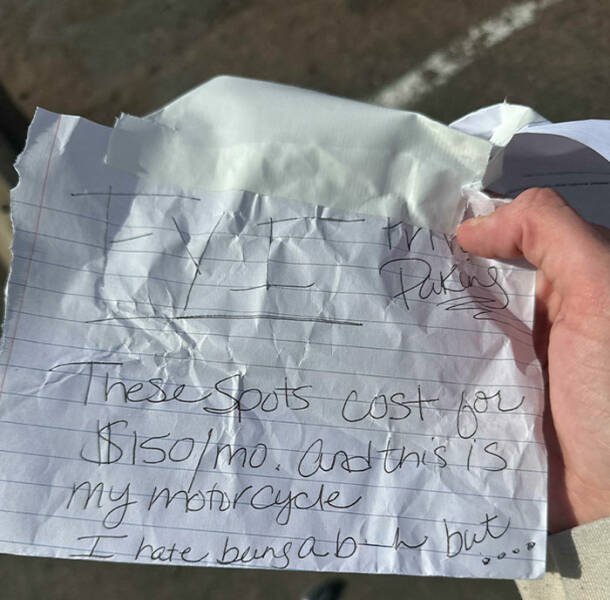 FYI
Paking
These spots cost for
$150/mo. And this is
my motorcycle
I hate being a b--h but....